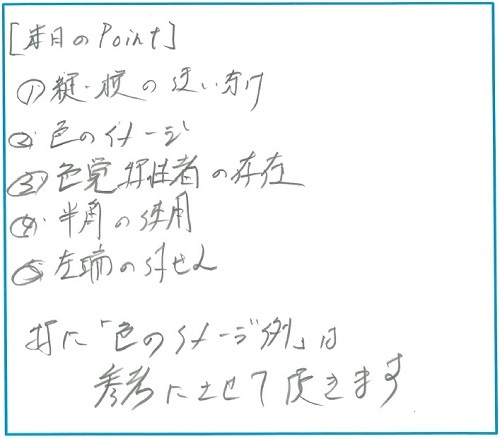 [本日のPoint]
① 縦・横の使い分け
② 色のイメージ
③ 色覚特性者の存在
④ 半角の使用
⑤ 左端の
特に「色のイメージ例」は
参考にさせて頂きます